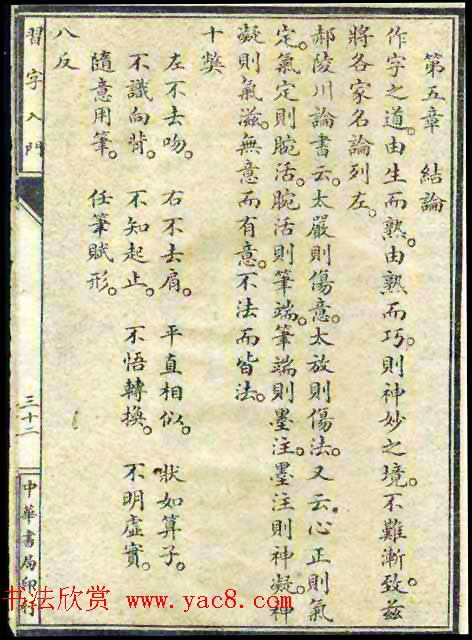 第五章　結論
作字之道。由生而熟。由熟而巧。則神妙之境。不難漸致。茲
將各家名論列左。
郝陵川論書云。太嚴則傷意。太放則傷法。又云。心正則氣
定。氣定則腕活。腕活則筆端。筆端則墨注。墨注則神凝。神
凝則氣滋。無意而有意。不法而皆法。
十獘
左不去吻。　右不去肩。　平直相似。　狀如算子。
不識向背。　不知起止。　不悟轉換。　不明虛實。
隨意用筆。　任筆賦形。
八反
習字入門
三十二
中華書局印行
书法欣赏 www.yac8.com